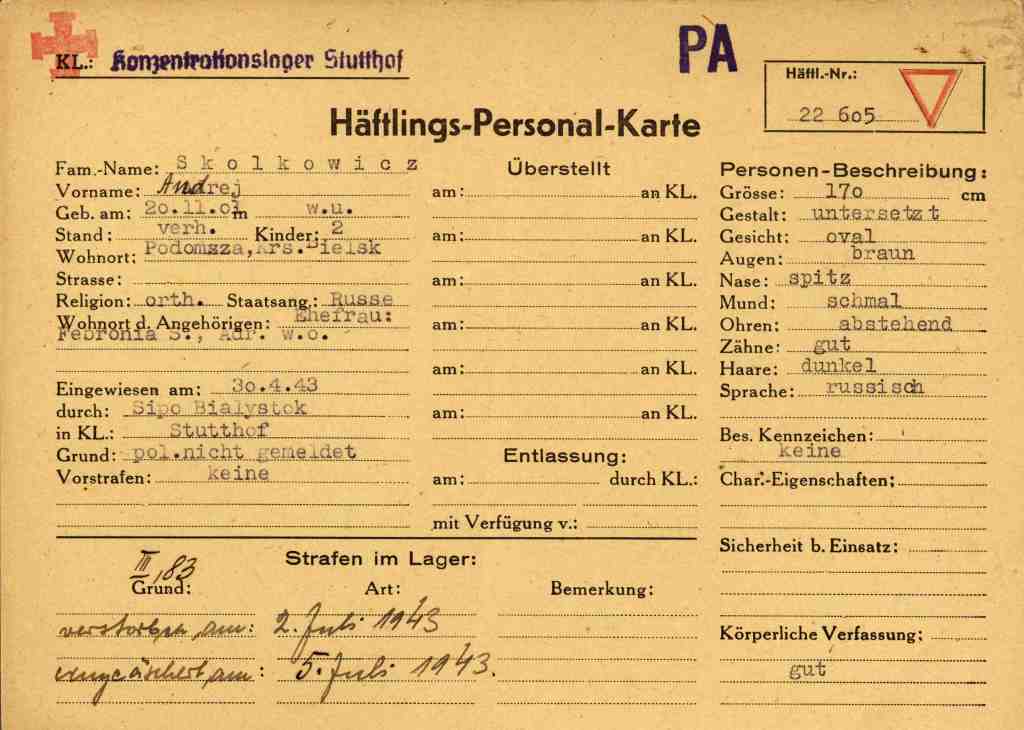 KL.: Konzentrationslager Stutthof
PA
Häftl.-Nr.:
22 605
Häftlings-Personal-Karte
Fam.-Name: Skolkowicz
Vorname: Andrej
Geb. am: 20.11.01 in w.u.
Stand: verh. Kinder: 2
Wohnort: Podomsza, Krs. Bielsk
Strasse:
Religion: orth. Staatsang.: Russe
Wohnort d. Angehörigen: Ehefrau:
Febronia S., Adr. w.o.
Eingewiesen am: 30.4.43
durch: Sipo Bialystok
in KL.: Stutthof
Grund: pol.nicht gemeldet
Vorstrafen: keine
Überstellt
am: an KL.
am: an KL.
am: an KL.
am: an KL.
am: an KL.
am: an KL.
Entlassung:
am: durch KL.:
mit Verfügung v.:
Personen-Beschreibung:
Grösse: 170 cm
Gestalt: untersetzt
Gesicht: oval
Augen: braun
Nase: spitz
Mund: schmal
Ohren: abstehend
Zähne: gut
Haare: dunkel
Sprache: russisch
Bes. Kennzeichen:
keine
Char.-Eigenschaften:
Sicherheit b. Einsatz:
Körperliche Verfassung:
gut
Strafen im Lager:
III, 83
Grund: Art: Bemerkung:
verstorben am: 2. Juli 1943
eingeäschert am: 5. Juli 1943.